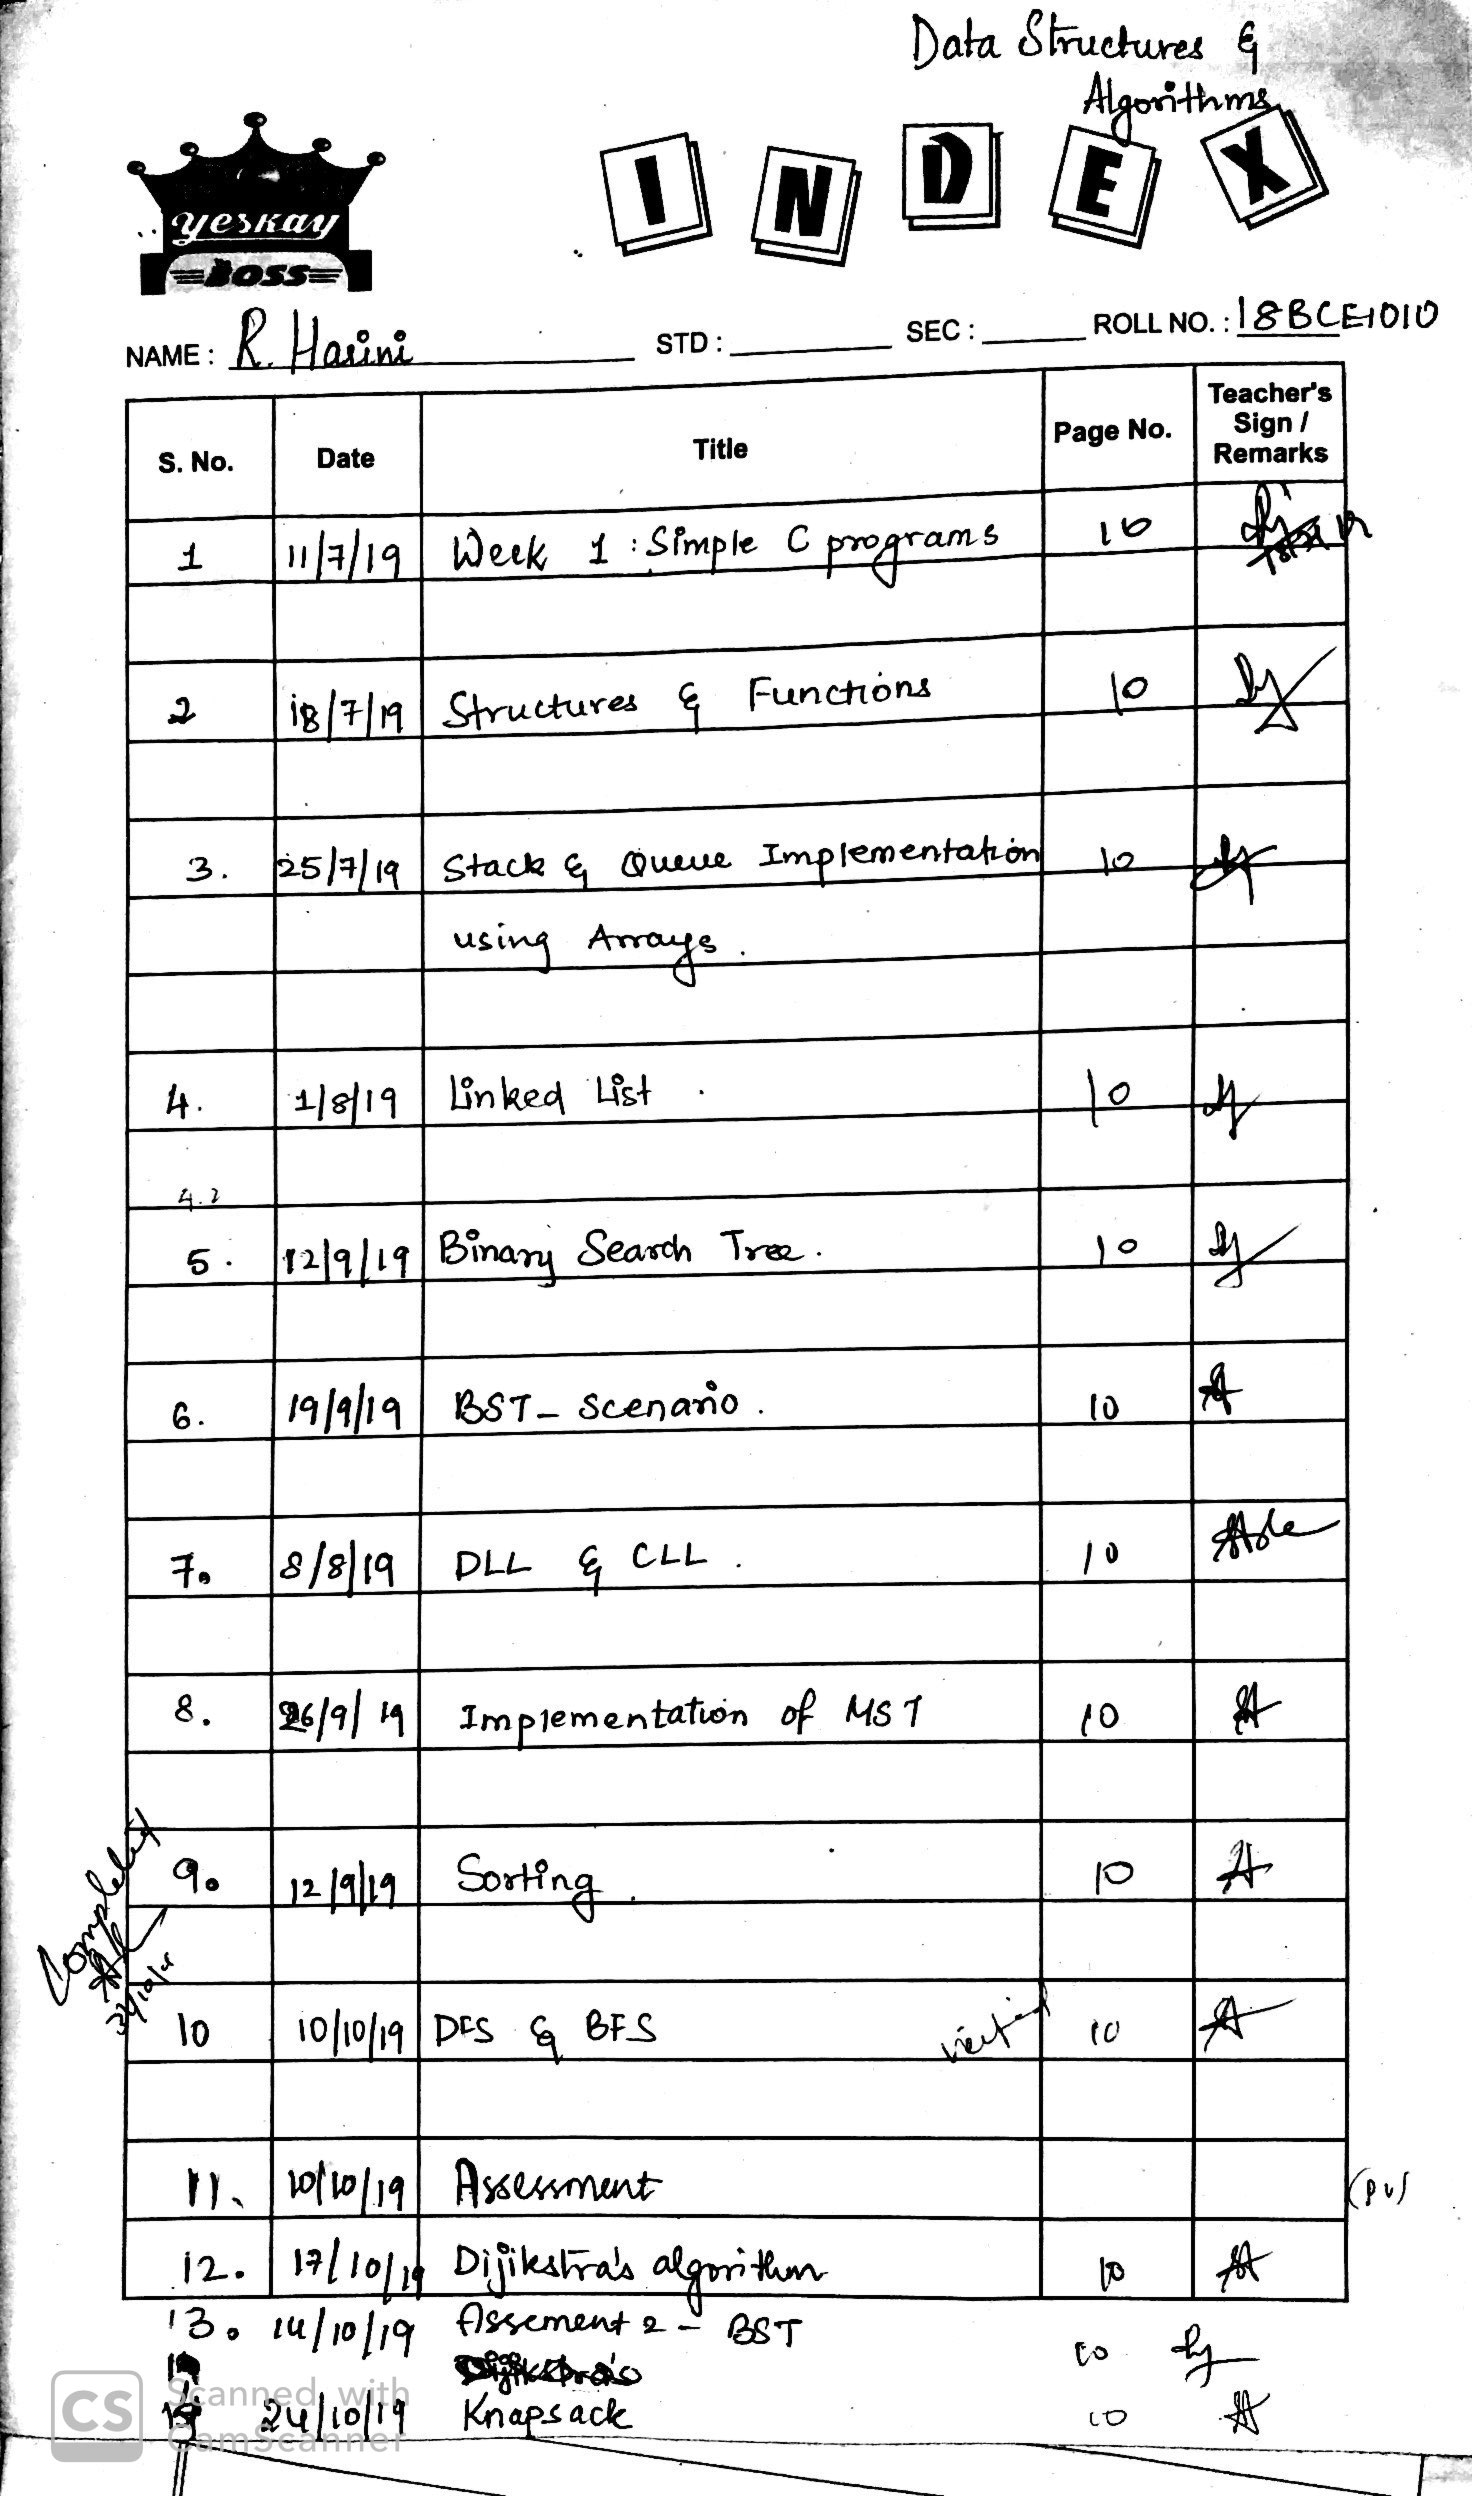 Data Structures &
Algorithms
INDEX
yeskay
BOSS
NAME : R. Harini STD : SEC : ROLL NO. : 18BCE1010
S. No. Date Title Page No. Teacher's Sign / Remarks
1 11/7/19 Week 1 : Simple C programs 10
2 18/7/19 Structures & Functions 10
3. 25/7/19 Stack & Queue Implementation 10
using Arrays.
4. 1/8/19 Linked List. 10
4.2
5. 12/9/19 Binary Search Tree. 10
6. 19/9/19 BST - Scenario. 10
7. 8/8/19 DLL & CLL. 10
8. 26/9/19 Implementation of MST 10
Completed
9. 12/9/19 Sorting. 10
10 10/10/19 DFS & BFS verified 10
11. 10/10/19 Assessment
12. 17/10/19 Dijikstra's algorithm 10
13. 14/10/19 Assement 2 - BST 10
Dijikstra's
24/10/19 Knapsack 10
CS Scanned with
CamScanner